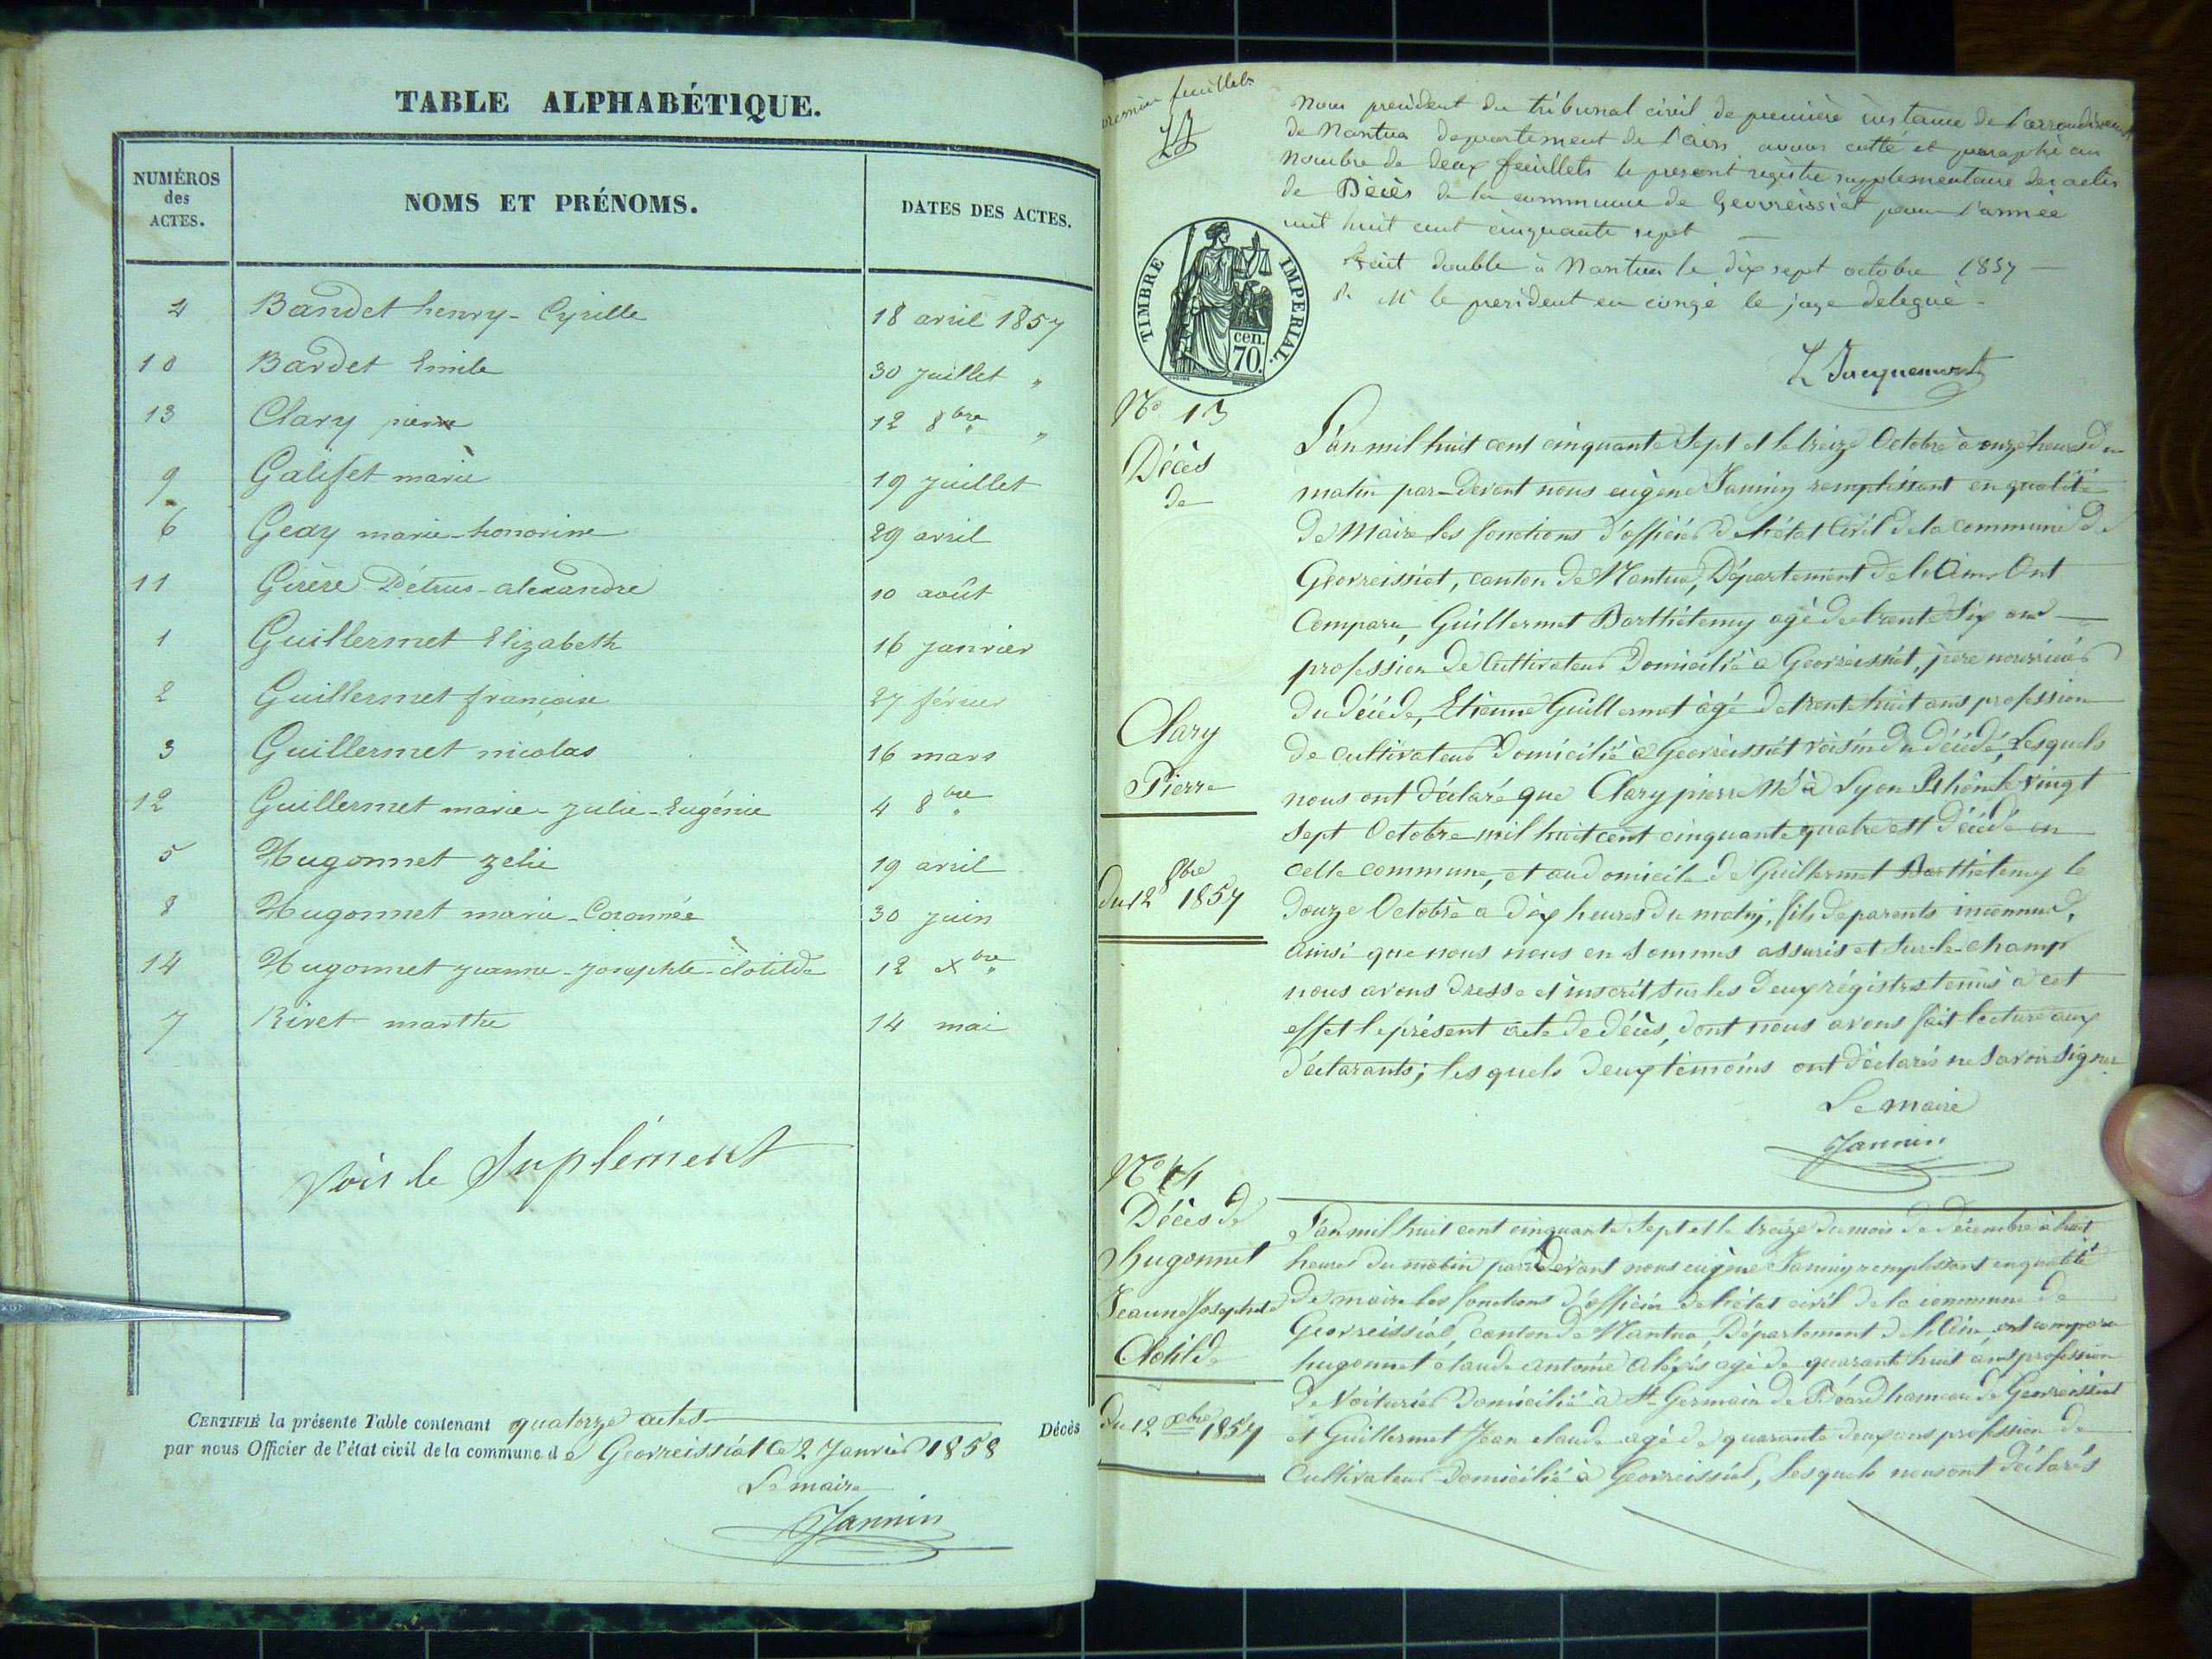 TABLE ALPHABÉTIQUE.
NUMÉROS des ACTES.
NOMS ET PRÉNOMS.
DATES DES ACTES.
4 Bandet henry-Cyrille 18 avril 1857
10 Bardet Emile 30 juillet "
13 Clary pierre 12 8bre "
9 Galifet marie 19 juillet
6 Geay marie-honorine 29 avril
11 Girère Pétrus-alexandre 10 août
1 Guillermet Elizabeth 16 janvier
2 Guillermet françoise 27 février
3 Guillermet nicolas 16 mars
12 Guillermet marie-julie-Eugénie 4 8bre
5 Hugonnet zelie 19 avril
8 Hugonnet marie-Coronnée 30 juin
14 Hugonnet jeanne-josephte-clotilde 12 xbre
7 Rivet marthe 14 mai
Voir le Suplément
CERTIFIÉ la présente Table contenant quatorze actes
par nous Officier de l'état civil de la commune de Géovreissiat ce 2 Janvier 1858
Décès
Le maire
Jannin
premier feuillet
Nous president du tribunal civil de première instance de l'arrondissement
de Nantua departement de l'ain avons cotté et paraphé au
nombre de deux feuillets le present registre supplementaire des actes
de Décès de la commune de Geovreissiat pour l'année
mil huit cent cinquante sept
fait double à Nantua le dix sept octobre 1857
Mr le president en congé le juge delegué
TIMBRE IMPERIAL.
cen. 70.
Jacquemart
No 13
Décès
de
Clary
Pierre
du 12 8bre 1857
L'an mil huit cent cinquante sept et le treize Octobre à onze heures du
matin par-devant nous eugène Jannin remplissant en qualité
de Maire les fonctions d'officier de l'état Civil de la commune de
Géovreissiat, canton de Nantua, Département de l'Ain Ont
Comparu, Guillermet Barthélemy agé de trente six ans
profession de Cultivateur Domicilié à Géovreissiat, père nourricier
du décédé, Etienne Guillermet âgé de trente huit ans profession
de cultivateur Domicilié à Géovreissiat voisin du décédé, Lesquels
nous ont déclaré que Clary pierre Né à Lyon Rhône le vingt
sept Octobre mil huit cent cinquante quatre est décédé en
cette commune, et au domicile de Guillermet Barthélemy le
douze Octobre à dix heures du matin, fils de parents inconnus,
ainsi que nous nous en sommes assurés et sur-le-champ
nous avons dressé et inscrit sur les deux régistres tenus à cet
effet le présent acte de décès, dont nous avons fait lecture aux
déclarants; les quels deux témoins ont déclarés ne savoir signer
Le maire
Jannin
No 14
Décès de
hugonnet
Jeanne Josephte
Clotilde
du 12 xbre 1857
L'an mil huit cent cinquante sept et le treize du mois de décembre à huit
heures du matin par Devant nous eugène Jannin remplissant en qualité
de maire les fonctions d'officier de l'état civil de la commune de
Géovreissiat, canton de Nantua, Département de l'Ain, ont comparu
hugonnet claude antoine aléxis agé de quarante huit ans profession
de Voiturier Domicilié à St Germain de Béard hameau de Géovreissiat
et Guillermet Jean claude agé de quarante deux ans profession de
Cultivateur Domicilié à Géovreissiat, lesquels nous ont déclarés